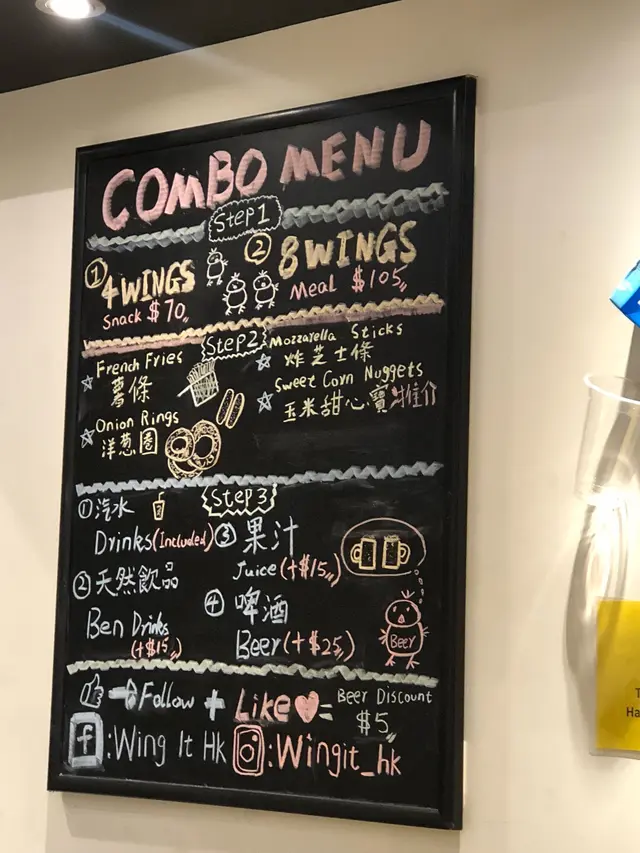 COMBO MENU
Step1
① 4WINGS
Snack $70
② 8WINGS
Meal $105
Step2
French Fries
薯條
Onion Rings
洋葱圈
Mozzarella Sticks
炸芝士條
Sweet Corn Nuggets
玉米甜心寶 推介
Step3
① 汽水
Drinks (Included)
② 天然飲品
Ben Drinks
(+$15)
③ 果汁
Juice (+$15)
④ 啤酒
Beer (+$25)
BEER
Follow + Like = Beer Discount
$5
f : Wing It Hk
: Wingit_hk